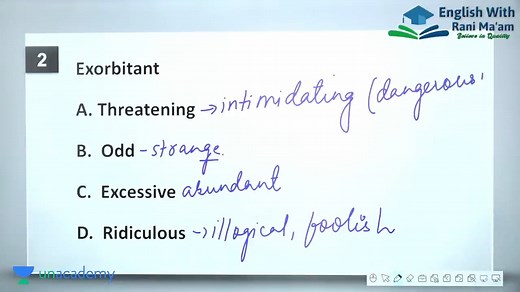 English With
Rani Ma'am
Believe in Quality
2
Exorbitant
A. Threatening → intimidating (dangerous,
B. Odd - strange.
C. Excessive abundant
D. Ridiculous → illogical, foolish
unacademy